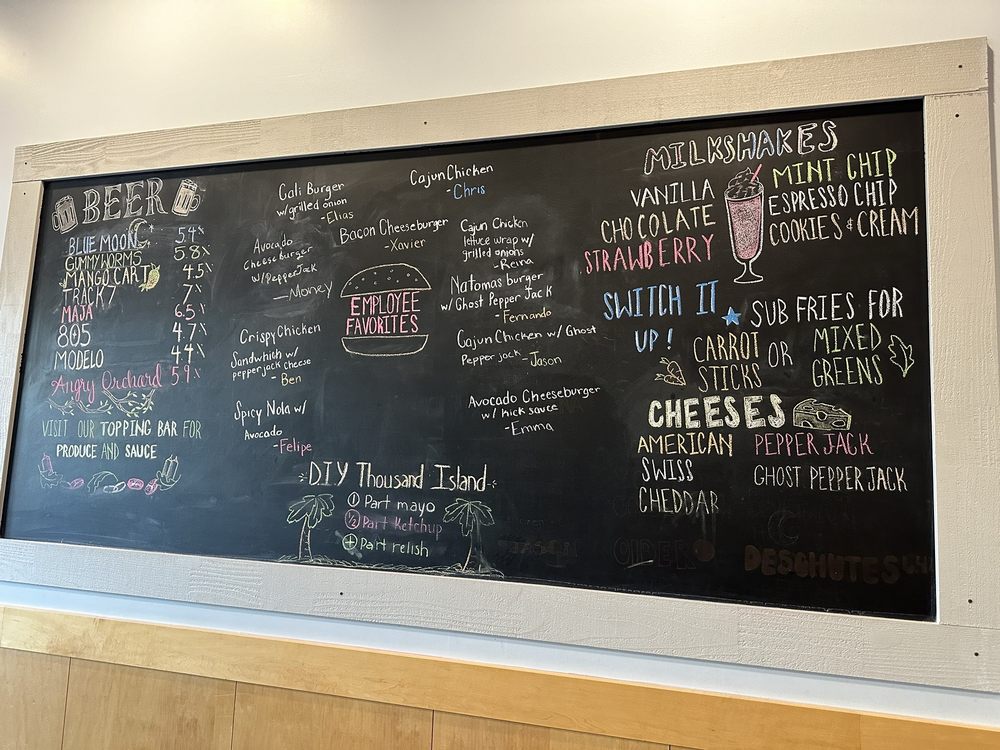 BEER
BLUE MOON 5.4%
GUMMYWORMS 5.8%
MANGO CART 4.5%
TRACK 7 7%
MAJA 6.5%
805 4.7%
MODELO 4.4%
Angry Orchard 5.9%
VISIT OUR TOPPING BAR FOR
PRODUCE AND SAUCE
Cali Burger
w/grilled onion
-Elias
Cajun Chicken
-Chris
Bacon Cheeseburger
-Xavier
Avocado
Cheeseburger
w/PepperJack
-Money
Cajun Chicken
lettuce wrap w/
grilled onions
-Reina
EMPLOYEE
FAVORITES
Natomas burger
w/ Ghost Pepper Jack
-Fernando
Crispy Chicken
Sandwhish w/
pepperjack cheese
-Ben
Cajun Chicken w/ Ghost
Pepper jack -Jason
Spicy Nola w/
Avocado
-Felipe
Avocado Cheeseburger
w/ hick sauce
-Emma
DIY Thousand Island
1 Part mayo
1/2 Part Ketchup
+ Part relish
MILKSHAKES
VANILLA
CHOCOLATE
STRAWBERRY
MINT CHIP
ESPRESSO CHIP
COOKIES & CREAM
SWITCH IT
UP!
SUB FRIES FOR
CARROT
STICKS
OR
MIXED
GREENS
CHEESES
AMERICAN
SWISS
CHEDDAR
PEPPER JACK
GHOST PEPPER JACK
CIDER
DESCHUTES